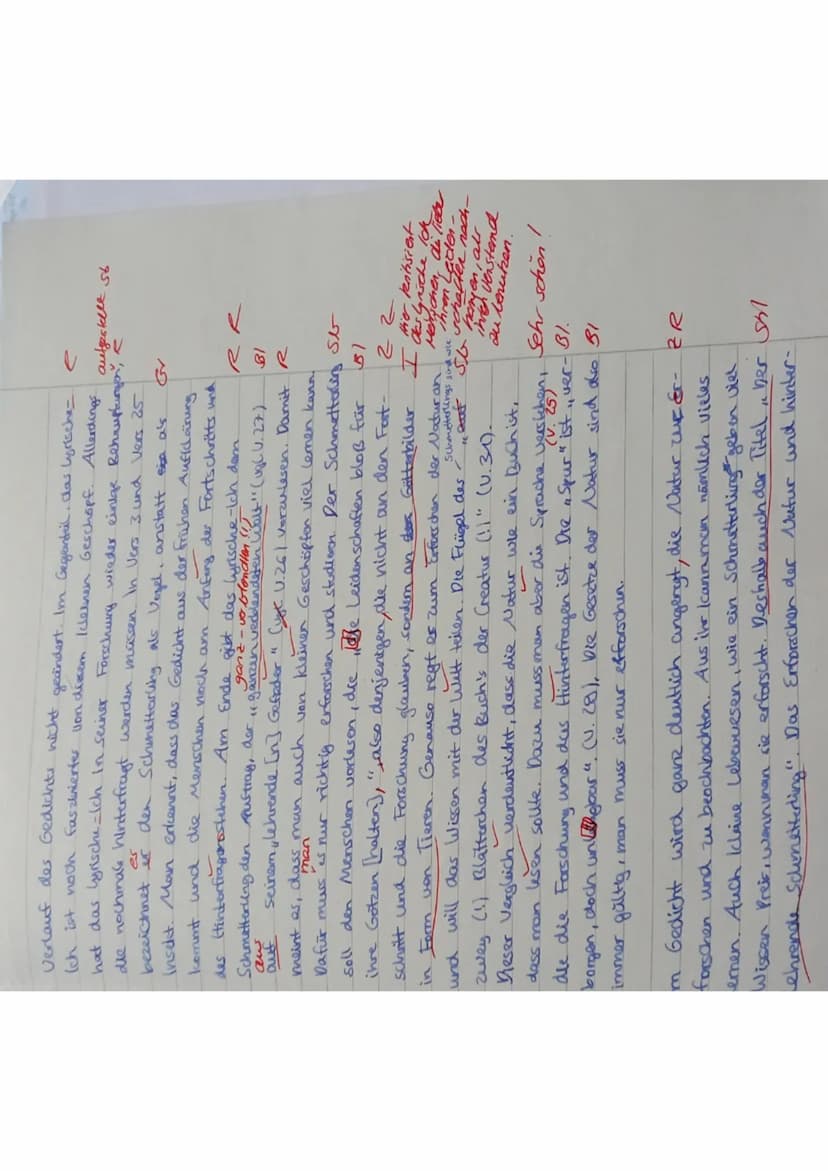 Verlauf des Gedichts nicht geändert. Im Gegenteil, das Lyrische- R
Ich ist noch faszinierter von diesem kleinen Geschöpf. Allerdings
hat das Lyrische-Ich in seiner Forschung wieder einige Behauptungen, aufgestellt Sb R
die nochmals hinterfragt werden müssen. In Vers 3 und Vers 25
bezeichnet er es den Schmetterling als Vogel, anstatt als Gr
Insekt. Man erkennt, dass das Gedicht aus der frühen Aufklärung
kommt und die Menschen noch am Anfang der Fortschritts und
des Hinterfragens stehen. Am Ende gibt das Lyrische-Ich dem R R
ganz-verblendten (!)
Schmetterling den Auftrag, der "ganz verblendeten Welt" (vgl. V.27) Bl
aus
auf seinem "lehrende[n] Gefieder" (vgl. V.26) vorzulesen. Damit R
meint es, dass man auch von kleinen Geschöpfen viel lernen kann.
man
Dafür muss es nur richtig erforschen und studieren. Der Schmetterling Sb
soll den Menschen vorlesen, die "die Leidenschaften bloß für Bl
ihre Götzen [halten]," also denjenigen, die nicht an den Fort- Z Z
schritt und die Forschung glauben, sondern an Götterbilder I
in Form von Tieren. Genauso regt es zum Erforschen der Natur an
Hier kritisiert
das lyrische Ich
Menschen, die lieber
ihren Leiden-
schaften nach-
hängen, als
ihren Verstand
zu benutzen.
und will das Wissen mit der Welt teilen. Die Flügel des Schmetterlings sind wie "auf Sb
zwey (!) Blättchen des Buch's der Creatur (!)" (V.31).
Dieser Vergleich verdeutlicht, dass die Natur wie ein Buch ist, Sehr schön!
dass man lesen sollte. Dazu muss man aber die Sprache verstehen,
die die Forschung und das Hinterfragen ist. Die "Spur" (V. 25) ist "ver- Bl.
borgen, doch" (V.28). Die Gesetze der Natur sind die Bl
immer gültig, man muss sie nur erforschen.
m Gedicht wird ganz deutlich angeregt, die Natur zu er- Z R
forschen und zu beobachten. Aus ihr kann man nämlich vieles
ernen. Auch kleine Lebewesen, wie ein Schmetterling geben viel
Wissen Preis, wenn man sie erforscht. Deshalb auch der Titel "Der
ehrende Schmetterling". Das Erforschen der Natur und Hinter-